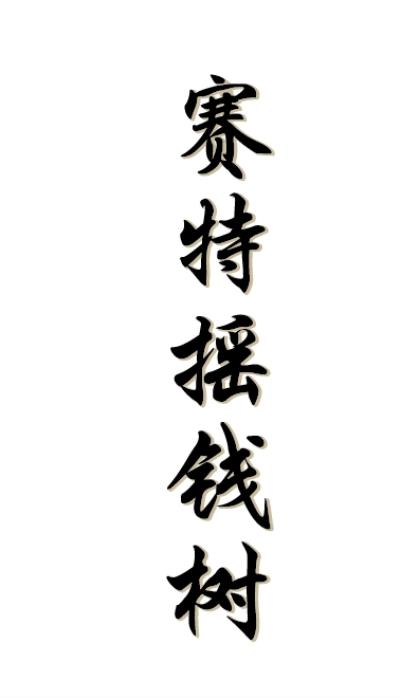 赛特摇钱树